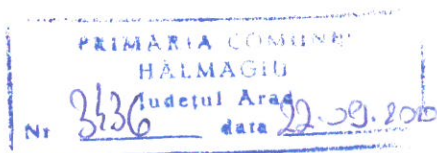 PRIMĂRIA COMUNEI
HĂLMAGIU
Judeţul Arad
Nr 3436 data 22.09.2010